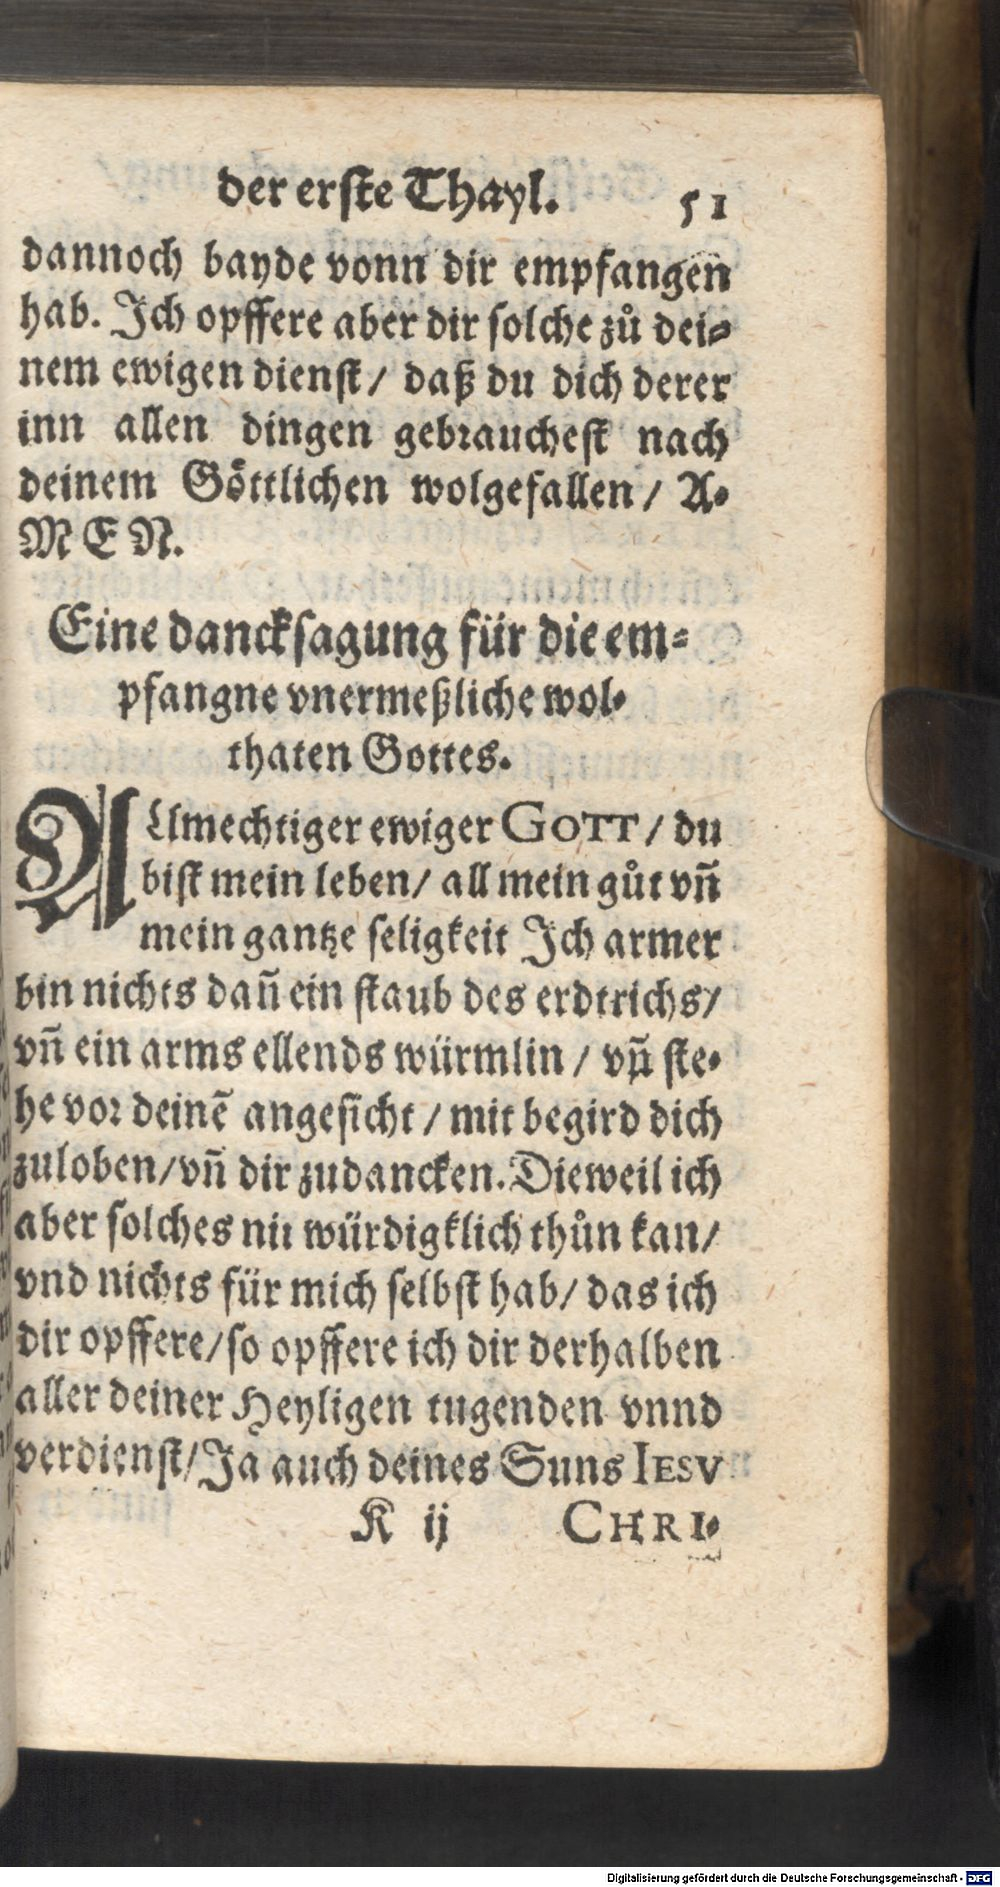 der erste Thayl. 51
dannoch bayde vonn dir empfangen
hab. Ich opffere aber dir solche zů dei-
nem ewigen dienst/ daß du dich derer
inn allen dingen gebrauchest nach
deinem Göttlichen wolgefallen/ A-
MEN.
Eine dancksagung für die em-
pfangne vnermeßliche wol-
thaten Gottes.
Allmechtiger ewiger GOTT/ du
bist mein leben/ all mein gůt vñ
mein gantze seligkeit Ich armer
bin nichts dañ ein staub des erdtrichs/
vñ ein arms ellends würmlin/ vñ ste-
he vor deinẽ angesicht/ mit begird dich
zuloben/ vñ dir zudancken. Dieweil ich
aber solches nit würdigklich thůn kan/
vnd nichts für mich selbst hab/ das ich
dir opffere/ so opffere ich dir derhalben
aller deiner Heyligen tugenden vnnd
verdienst/ Ja auch deines Suns IESV
K ij CHRI-
Digitalisierung gefördert durch die Deutsche Forschungsgemeinschaft - DFG